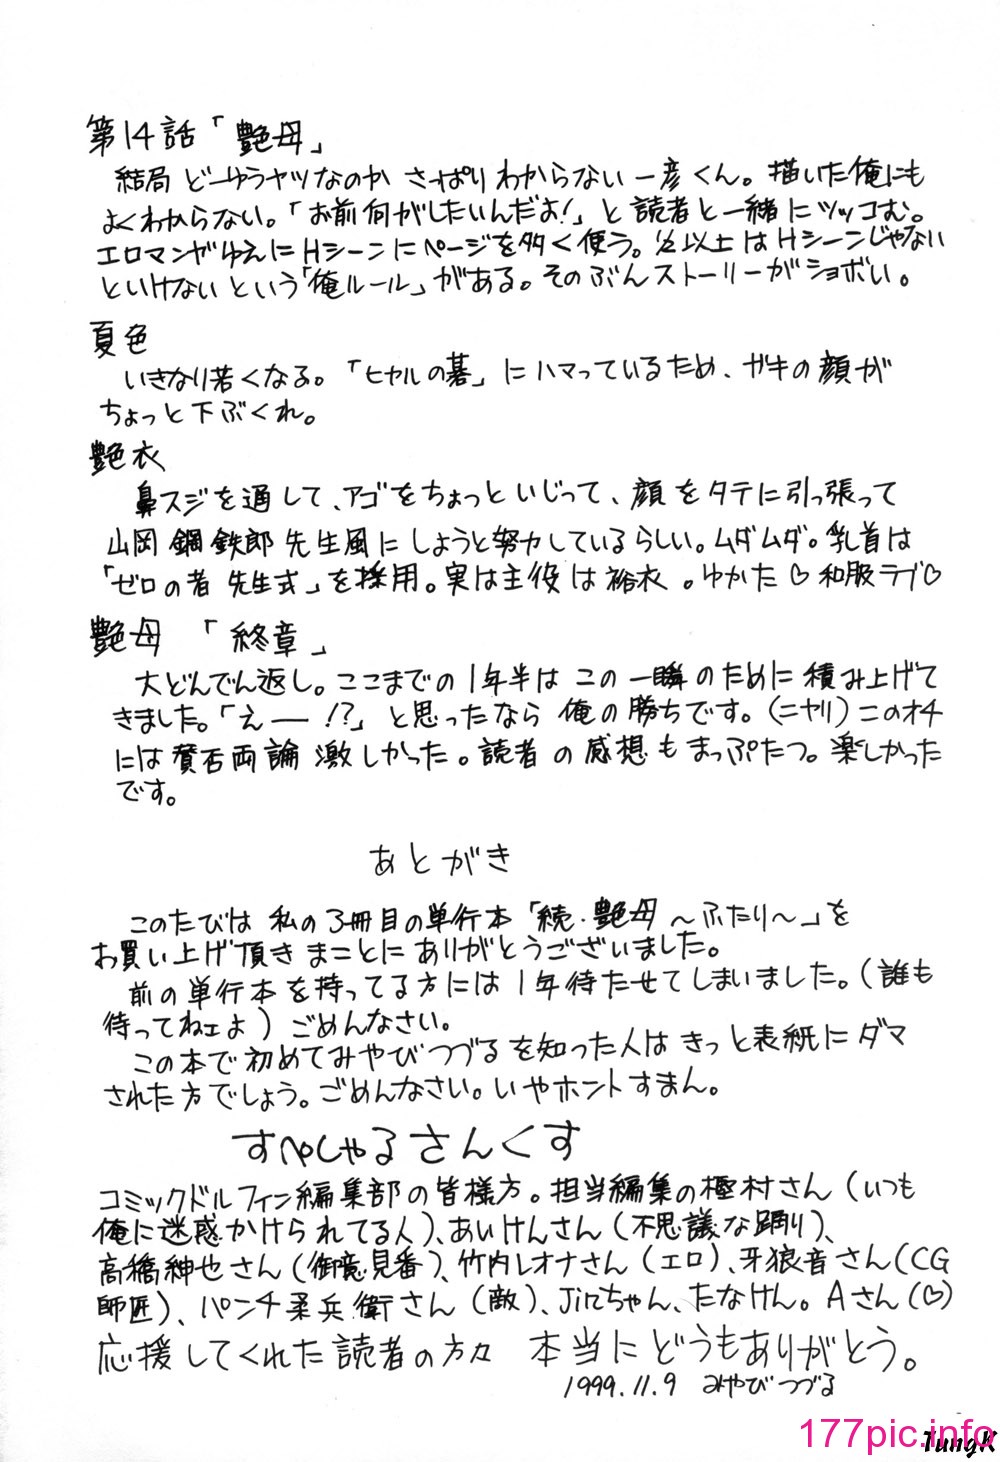 第14話「艶母」
結局どーゆうヤツなのかさっぱりわからない一彦くん。描いた俺にも
よくわからない。「お前何がしたいんだよ!」と読者と一緒にツッコむ。
エロマンガゆえにHシーンにページを多く使う。½以上はHシーンじゃない
といけないという「俺ルール」がある。そのぶんストーリーがショボい。
夏色
いきなり若くなる。「ヒヤルの碁」にハマっているため、ガキの顔が
ちょっと下ぶくれ。
艶衣
鼻スジを通して、アゴをちょっといじって、顔をタテに引っ張って
山岡鋼鉄郎先生風にしようと努力しているらしい。ムダムダ。乳首は
「ゼロの者先生式」を採用。実は主役は裕衣。ゆかた♡和服ラブ♡
艶母 「終章」
大どんでん返し。ここまでの1年半はこの一瞬のために積み上げて
きました。「えー!?」と思ったなら俺の勝ちです。(ニヤリ)このオチ
には賛否両論激しかった。読者の感想もまっぷたつ。楽しかった
です。
あとがき
このたびは私の3冊目の単行本「続・艶母〜ふたり〜」を
お買い上げ頂きまことにありがとうございました。
前の単行本を持ってる方には1年待たせてしまいました。(誰も
待ってねェよ)ごめんなさい。
この本で初めてみやびつづるを知った人はきっと表紙にダマ
された方でしょう。ごめんなさい。いやホントすまん。
すぺしゃるさんくす
コミックドルフィン編集部の皆様方。担当編集の極村さん(いつも
俺に迷惑かけられてる人)、あいけんさん(不思議な踊り)、
高橋紳也さん(御意見番)、竹内レオナさん(エロ)、牙狼音さん(CG
師匠)、パンチ柔兵衛さん(敵)、Jinちゃん、たなけん。Aさん(♡)
応援してくれた読者の方々 本当にどうもありがとう。
1999.11.9 みやびつづる
177pic.info
TungK